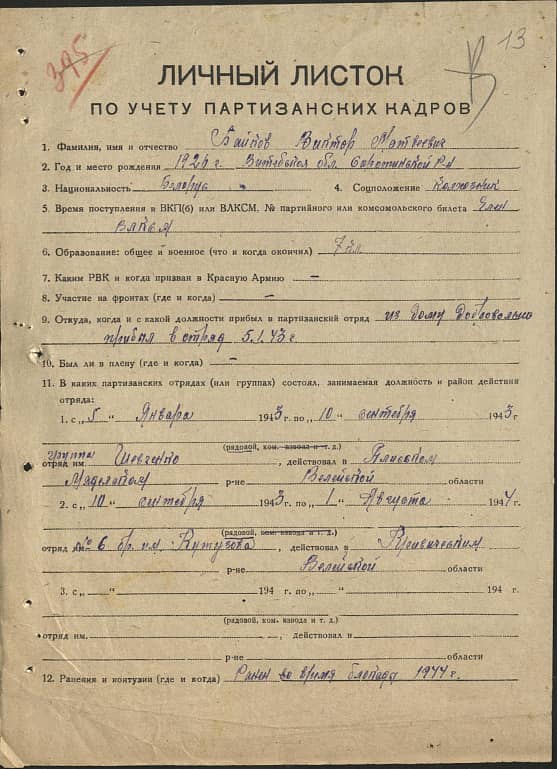 395
13
ЛИЧНЫЙ ЛИСТОК
ПО УЧЕТУ ПАРТИЗАНСКИХ КАДРОВ
1. Фамилия, имя и отчество Байков Виктор Матвеевич
2. Год и место рождения 1926 г. Витебская обл. Сиротинский р-н
3. Национальность Белорус 4. Соцположение Колхозник
5. Время поступления в ВКП(б) или ВЛКСМ, № партийного или комсомольского билета Член
ВЛКСМ
6. Образование: общее и военное (что и когда окончил) 7 кл.
7. Каким РВК и когда призван в Красную Армию –
8. Участие на фронтах (где и когда) –
9. Откуда, когда и с какой должности прибыл в партизанский отряд из дому добровольно
прибыл в отряд 5.1.43 г.
10. Был ли в плену (где и когда) –
11. В каких партизанских отрядах (или группах) состоял, занимаемая должность и район действия
отряда:
1. с „ 5 “ Января 1943 г. по „ 10 “ сентября 1943 г.
(рядовой, ком. взвода и т. д.)
группа
отряд им. Шевченко, действовал в Плисском
Мядельском р-не Велейской области
2. с „ 10 “ сентября 1943 г. по „ 1 “ Августа 1944 г.
(рядовой, ком. взвода и т. д.)
отряд № 6 бр. им. Кутузова, действовал в Кривичском
р-не Велейской области
3. с „ “ 194 г. по „ “ 194 г.
(рядовой, ком. взвода и т. д.)
отряд им., действовал в
р-не области
12. Ранения и контузии (где и когда) Ранен во время блокады 1944 г.